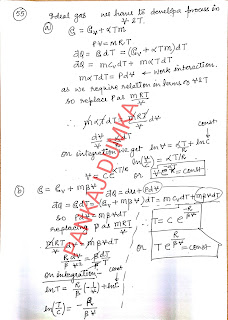 55 Ideal gas we have to develop a process in
V & T
a) C = Cv + αT m
PV = mRT
dQ = C dT = (Cv + αTm)dT
dQ = mCvdT + mαTdT
mαTdT = PdV ← work interaction.
as we require relation in terms of V & T
so replace P as mRT/V
∴ mαTdT = mRT/V dV
dV/V = α/R dT
on integration we get ln V = αT/R + ln C
const
ln(V/C) = αT/R
V = C e^(αT/R) or V e^(-αT/R) = const
b) C = Cv + mβV
dQ = du + PdV
dQ = CdT = (Cv + mβV)dT = mCvdT + mβVdT
so PdV = mβVdT
replacing P as mRT/V
mRT/V dV = mβVdT
R/β dV/V² = dT/T
on integration —
const
ln T = R/β (-1/V) + ln C
ln(T/C) = -R/βV
∴ T = C e^(-R/βV)
or
T e^(R/βV) = const
PANKAJ DUMKA